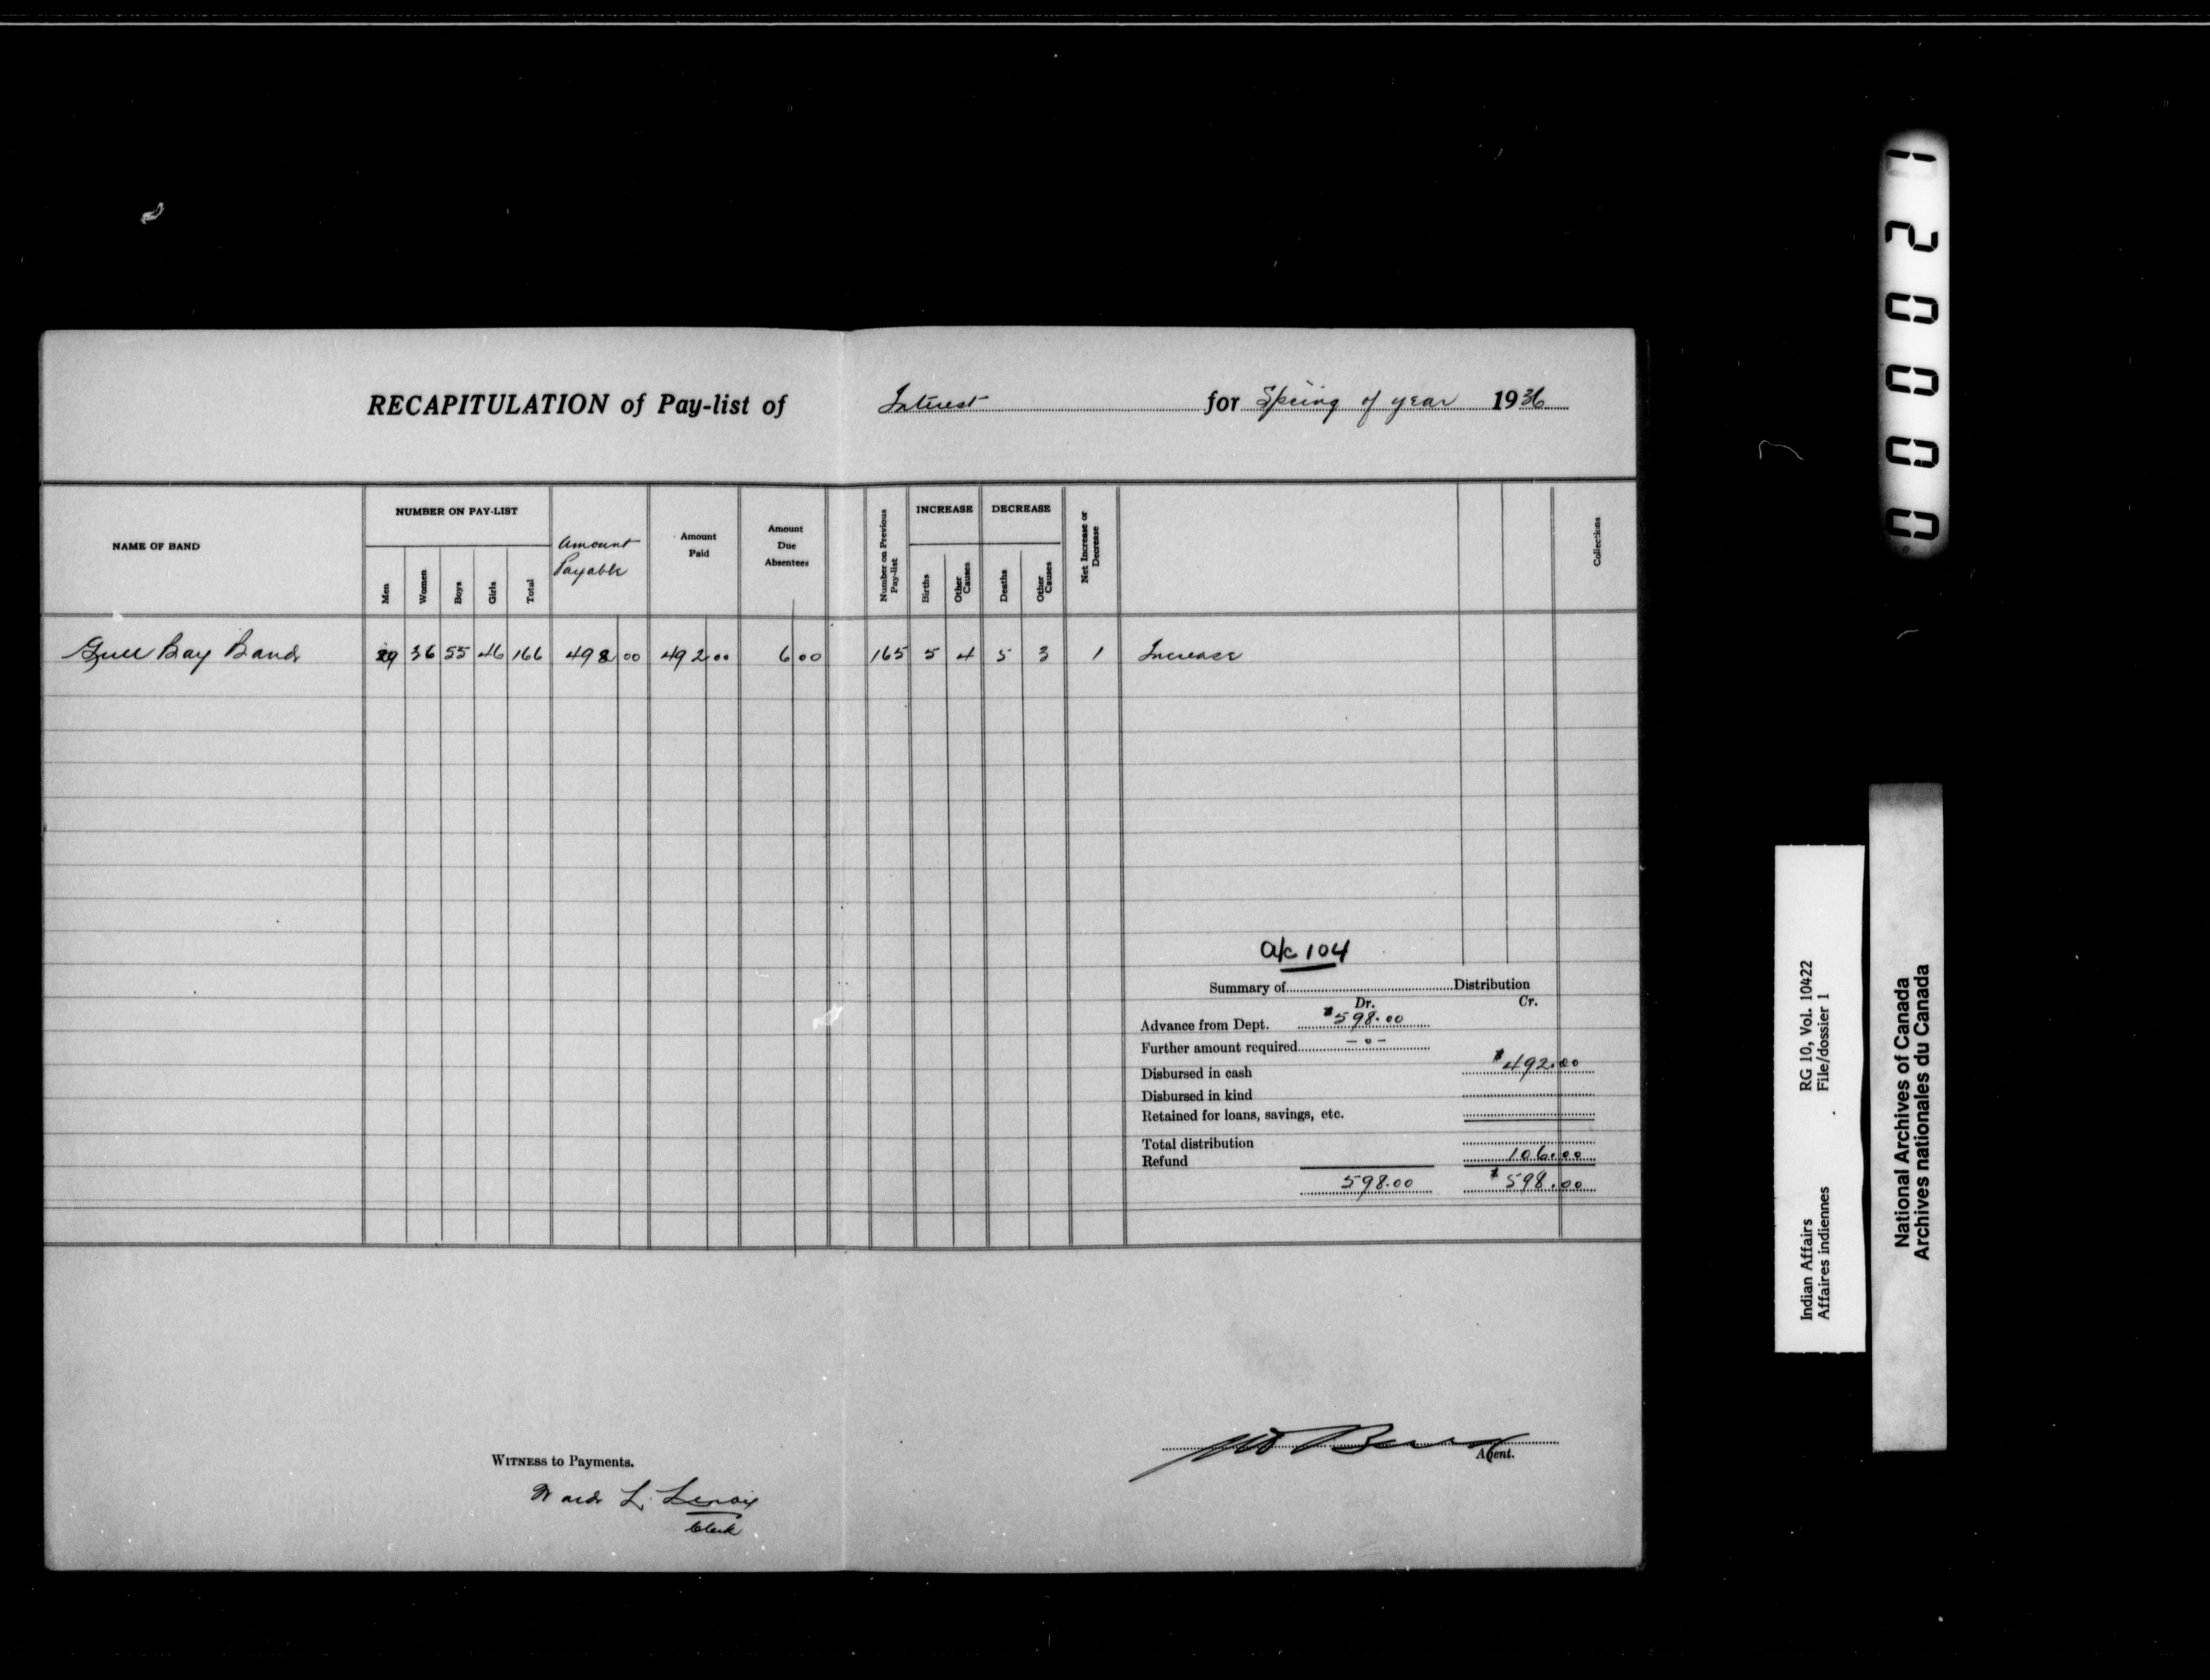 RECAPITULATION of Pay-list of Interest for Spring of year 1936
NAME OF BAND
NUMBER ON PAY-LIST
Men
Women
Boys
Girls
Total
Amount Payable
Amount Paid
Amount Due Absentees
Number on Previous Pay-list
INCREASE
Births
Other Causes
DECREASE
Deaths
Other Causes
Net Increase or Decrease
Collections
Gull Bay Band 29 36 55 46 166 498 00 492 00 6 00 165 5 4 5 3 1 Increase
a/c 104
Summary of Distribution
Dr. Cr.
Advance from Dept. $598.00
Further amount required - 0 -
Disbursed in cash $492.00
Disbursed in kind
Retained for loans, savings, etc.
Total distribution
Refund 106.00
598.00 $598.00
Agent.
WITNESS to Payments.
L.
Clerk
0000201
Indian Affairs RG 10, Vol. 10422
Affaires indiennes File/dossier 1
National Archives of Canada
Archives nationales du Canada